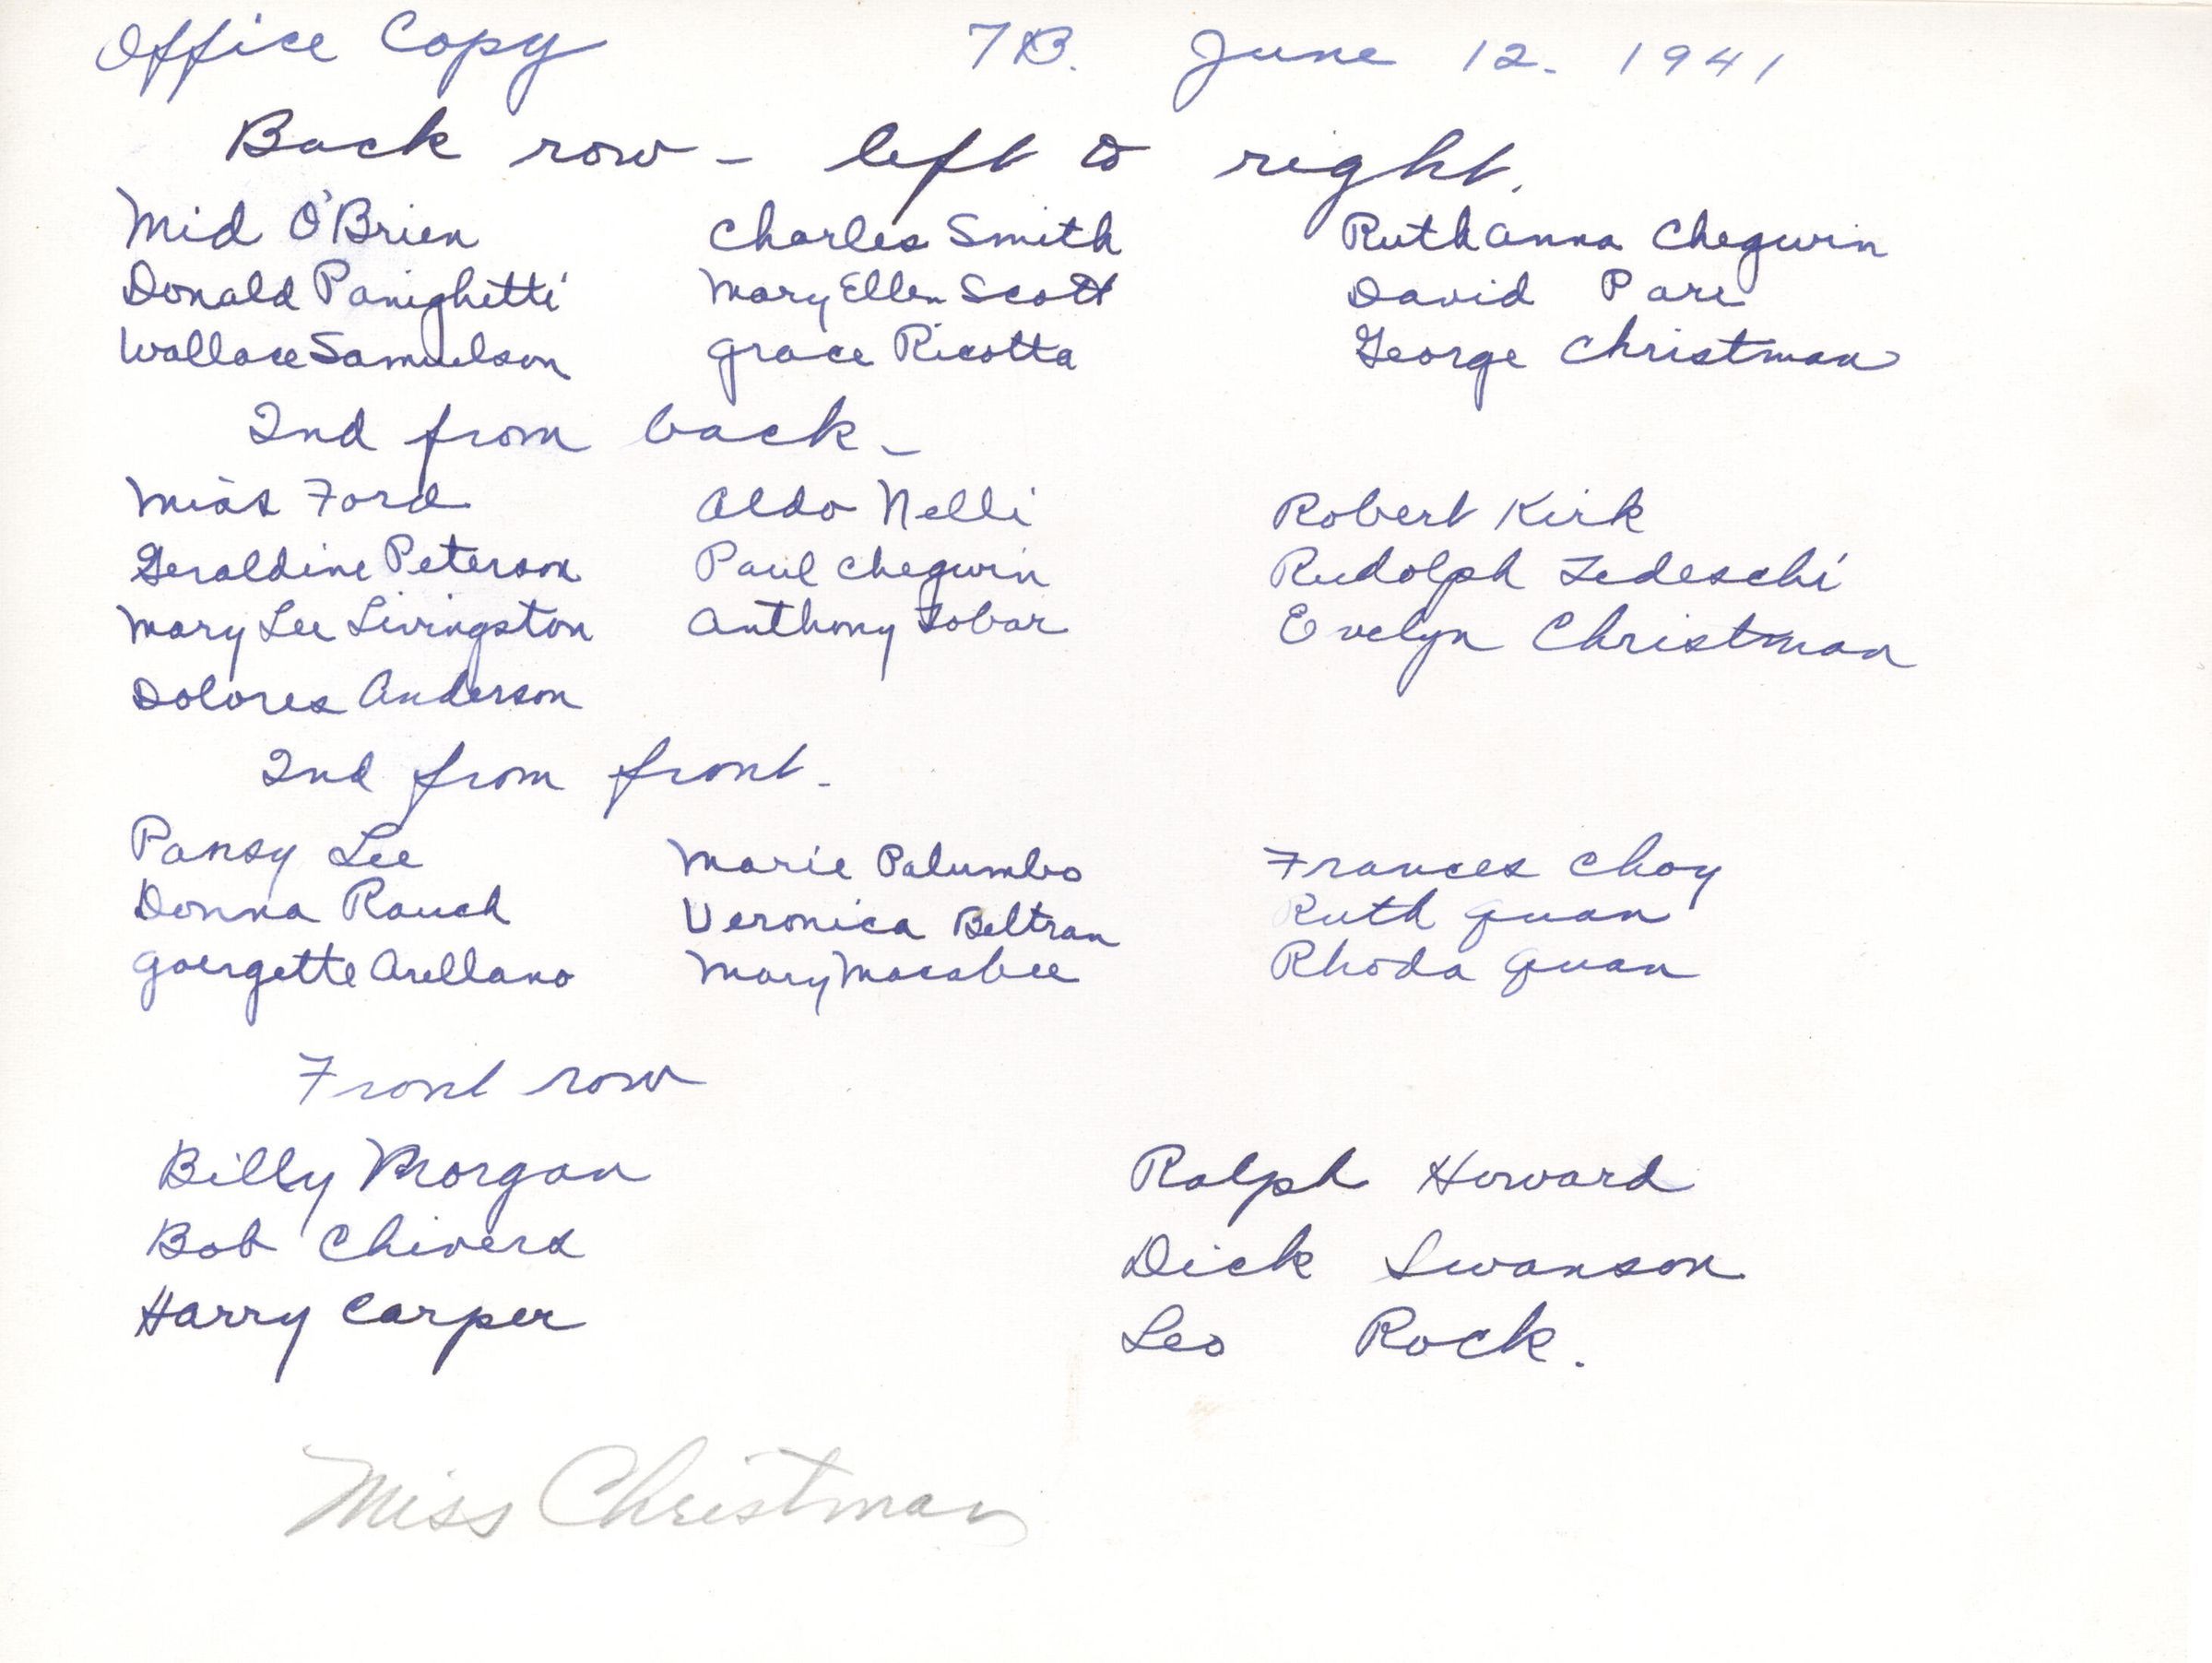 Office Copy 7B. June 12. 1941
Back row - left to right.
Mid O'Brien Charles Smith Ruthanna Chegwin
Donald Panighetti Mary Ellen Scott David Pare
Wallace Samuelson Grace Ricotta George Christman
2nd from back -
Miss Ford Aldo Nelli Robert Kirk
Geraldine Peterson Paul Chegwin Rudolph Tedeschi
Mary Lee Livingston Anthony Tobar Evelyn Christman
Dolores Anderson
2nd from front.
Pansy Lee Marie Palumbo Frances Choy
Donna Rauch Veronica Beltran Ruth Quan
Goergette Arellano Mary Macabee Rhoda Quan
Front row
Billy Morgan Ralph Howard
Bob Chivers Dick Swanson
Harry Carper Leo Rock.
Miss Christman